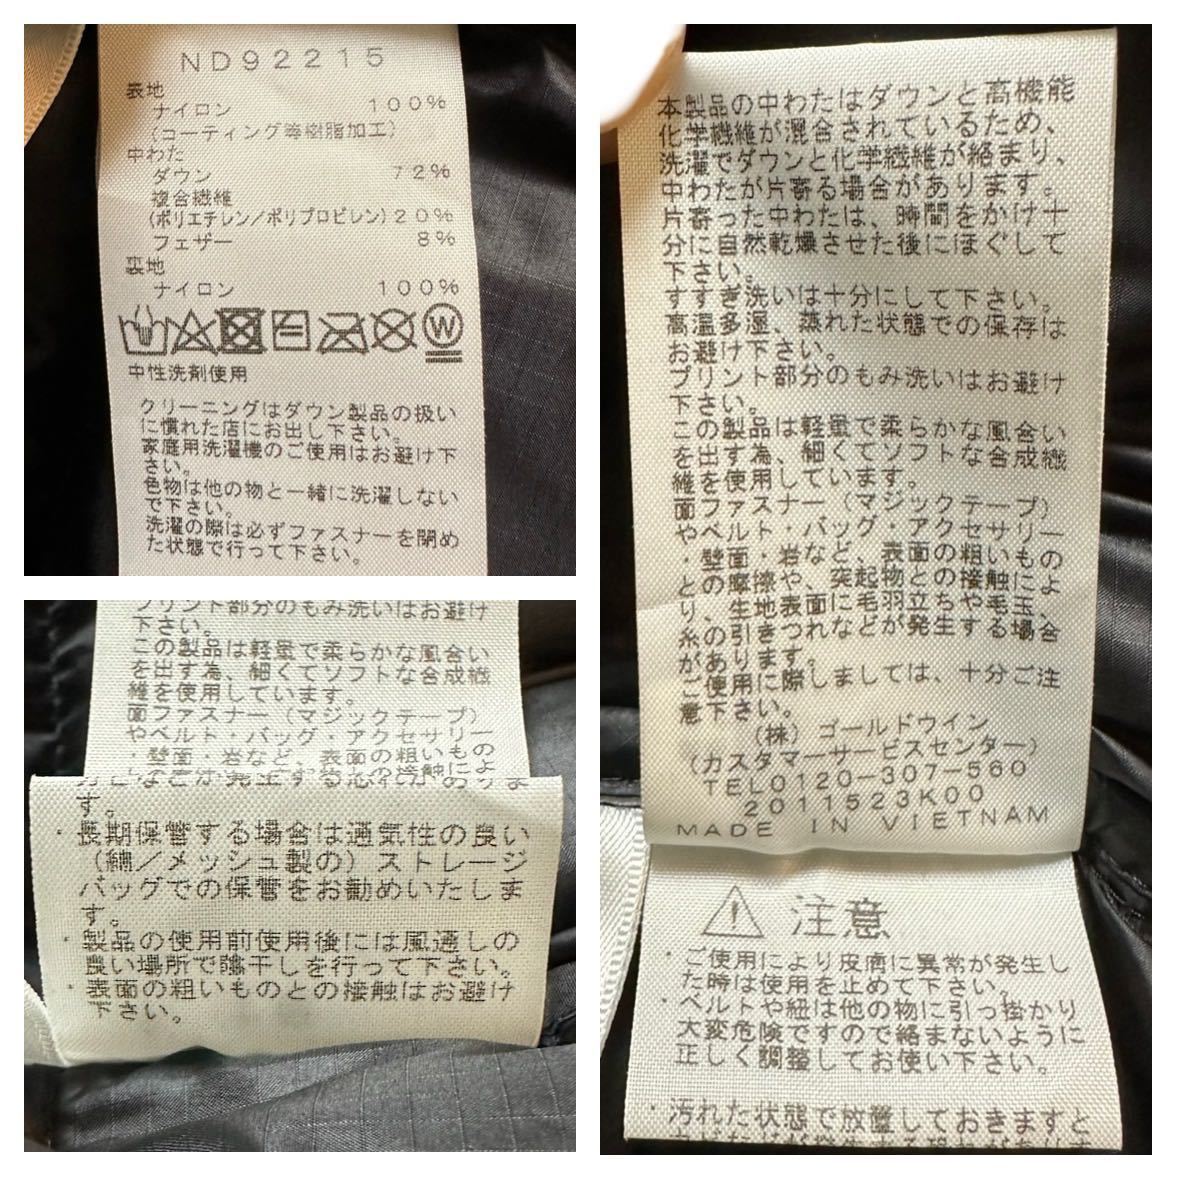 ND92215
表地
ナイロン 100%
(コーティング等樹脂加工)
中わた
ダウン 72%
複合繊維
(ポリエチレン/ポリプロピレン) 20%
フェザー 8%
裏地
ナイロン 100%
W
中性洗剤使用
クリーニングはダウン製品の扱い
に慣れた店にお出し下さい。
家庭用洗濯機のご使用はお避け下
さい。
色物は他の物と一緒に洗濯しない
で下さい。
洗濯の際は必ずファスナーを閉め
た状態で行って下さい。
プリント部分のもみ洗いはお避け
下さい。
この製品は軽量で柔らかな風合い
を出す為、細くてソフトな合成繊
維を使用しています。
面ファスナー(マジックテープ)
やベルト・バッグ・アクセサリー
・壁面・岩など、表面の粗いもの
す。
・長期保管する場合は通気性の良い
(綿/メッシュ製の)ストレージ
バッグでの保管をお勧めいたしま
す。
・製品の使用前使用後には風通しの
良い場所で陰干しを行って下さい。
・表面の粗いものとの接触はお避け
下さい。
本製品の中わたはダウンと高機能
化学繊維が混合されているため、
洗濯でダウンと化学繊維が絡まり、
中わたが片寄る場合があります。
片寄った中わたは、時間をかけ十
分に自然乾燥させた後にほぐして
下さい。
すすぎ洗いは十分にして下さい。
高温多湿、蒸れた状態での保存は
お避け下さい。
プリント部分のもみ洗いはお避け
下さい。
この製品は軽量で柔らかな風合い
を出す為、細くてソフトな合成繊
維を使用しています。
面ファスナー(マジックテープ)
やベルト・バッグ・アクセサリー
・壁面・岩など、表面の粗いもの
との摩擦や、突起物との接触によ
り、生地表面に毛羽立ちや毛玉、
糸の引きつれなどが発生する場合
があります。
ご使用に際しましては、十分ご注
意下さい。
(株)ゴールドウイン
(カスタマーサービスセンター)
TEL0120-307-560
2011523K00
MADE IN VIETNAM
注意
・ご使用により皮膚に異常が発生し
た時は使用を止めて下さい。
・ベルトや紐は他の物に引っ掛かり
大変危険ですので絡まないように
正しく調整してお使い下さい。
・汚れた状態で放置しておきますと